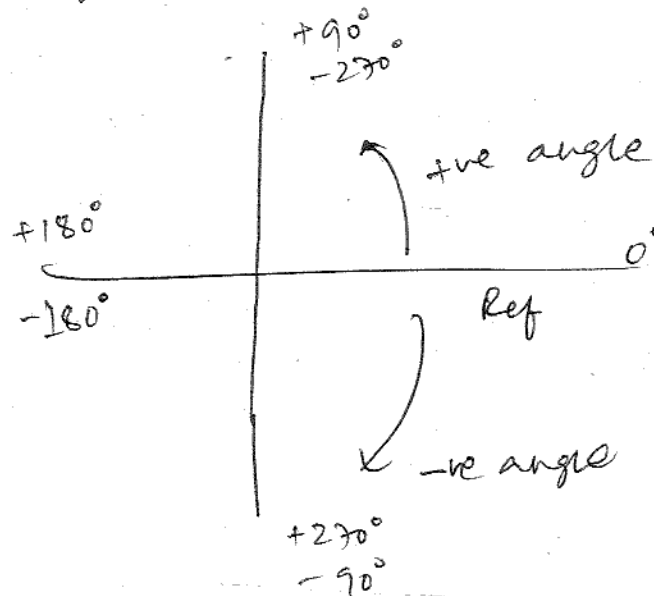 +90°
-270°
+ve angle
+180°
0°
-180°
Ref
-ve angle
+270°
-90°